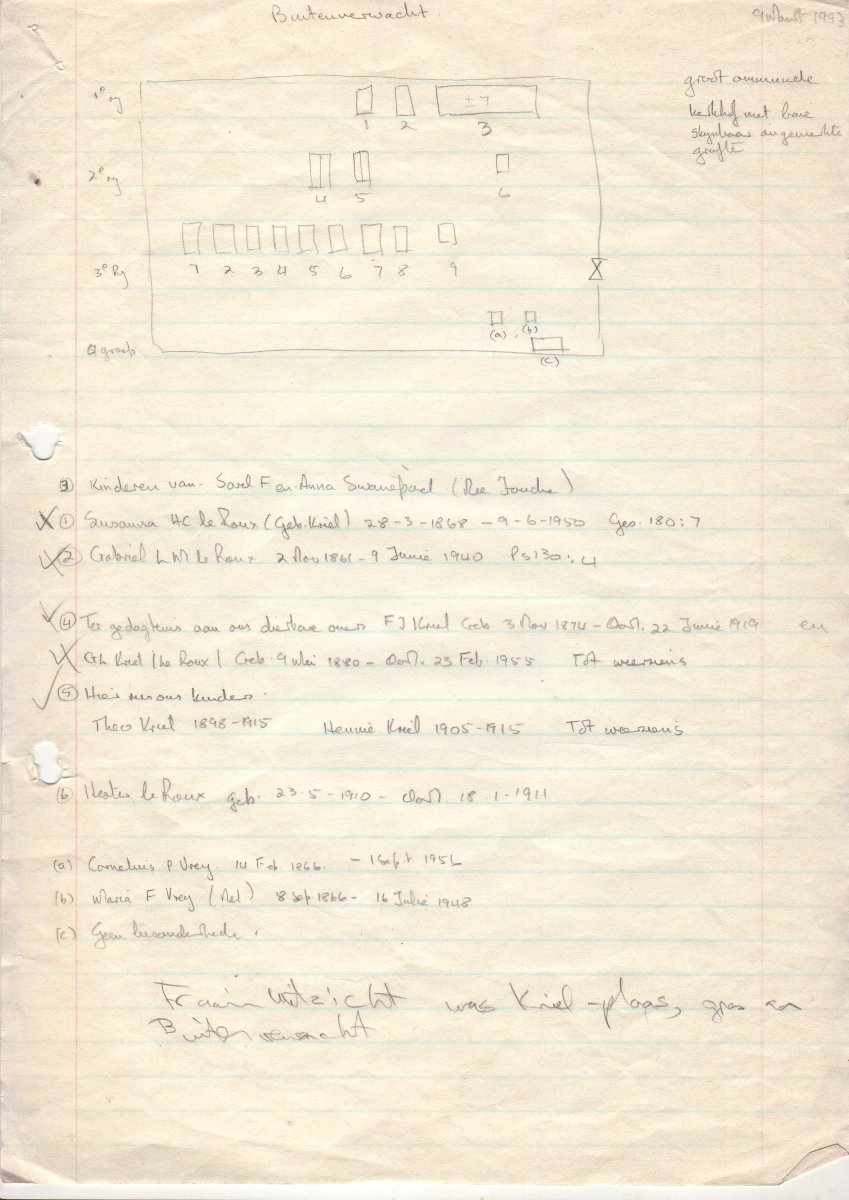 Buitenverwacht.
9 Maart 1993
groot ommuurde
kerkhof met baie
skynbaar ongemerkte
grafte
1e ry
± 7
1 2 3
2e ry
4 5 6
3e Ry
1 2 3 4 5 6 7 8 9
(a) (b)
(c)
③ Kinderen van Sarel F en Anna Swanepoel (Nee Fouche)
① Susanna HC le Roux (Geb. Kriel) 28-3-1868 - 9-6-1950 Ges. 180:7
② Gabriel L M le Roux 2 Nov 1861 - 9 Junie 1940 Ps 130:4
④ Ter gedagtenis aan ons dierbare ouers F J Kriel Geb 3 Nov 1874 - Oorl. 22 Junie 1919 en
GL Kriel (le Roux) Geb. 9 Mei 1880 - Oorl. 23 Feb. 1955 Tot weersiens
⑤ Hier rus ons kinders.
Theo Kriel 1898-1915 Hennie Kriel 1905-1915 Tot weersiens
⑥ Hester le Roux geb. 23-5-1910 - Oorl 18 1-1911
(a) Cornelius P Vrey 14 Feb 1866 - 1 Sept
(b) Maria F Vrey (Nel) 8 Sep 1866 - 16 Julie 1948
(c) Geen besonderhede.
Fraaiuitzicht was Kriel-plaas, grens aan
Buitenverwacht